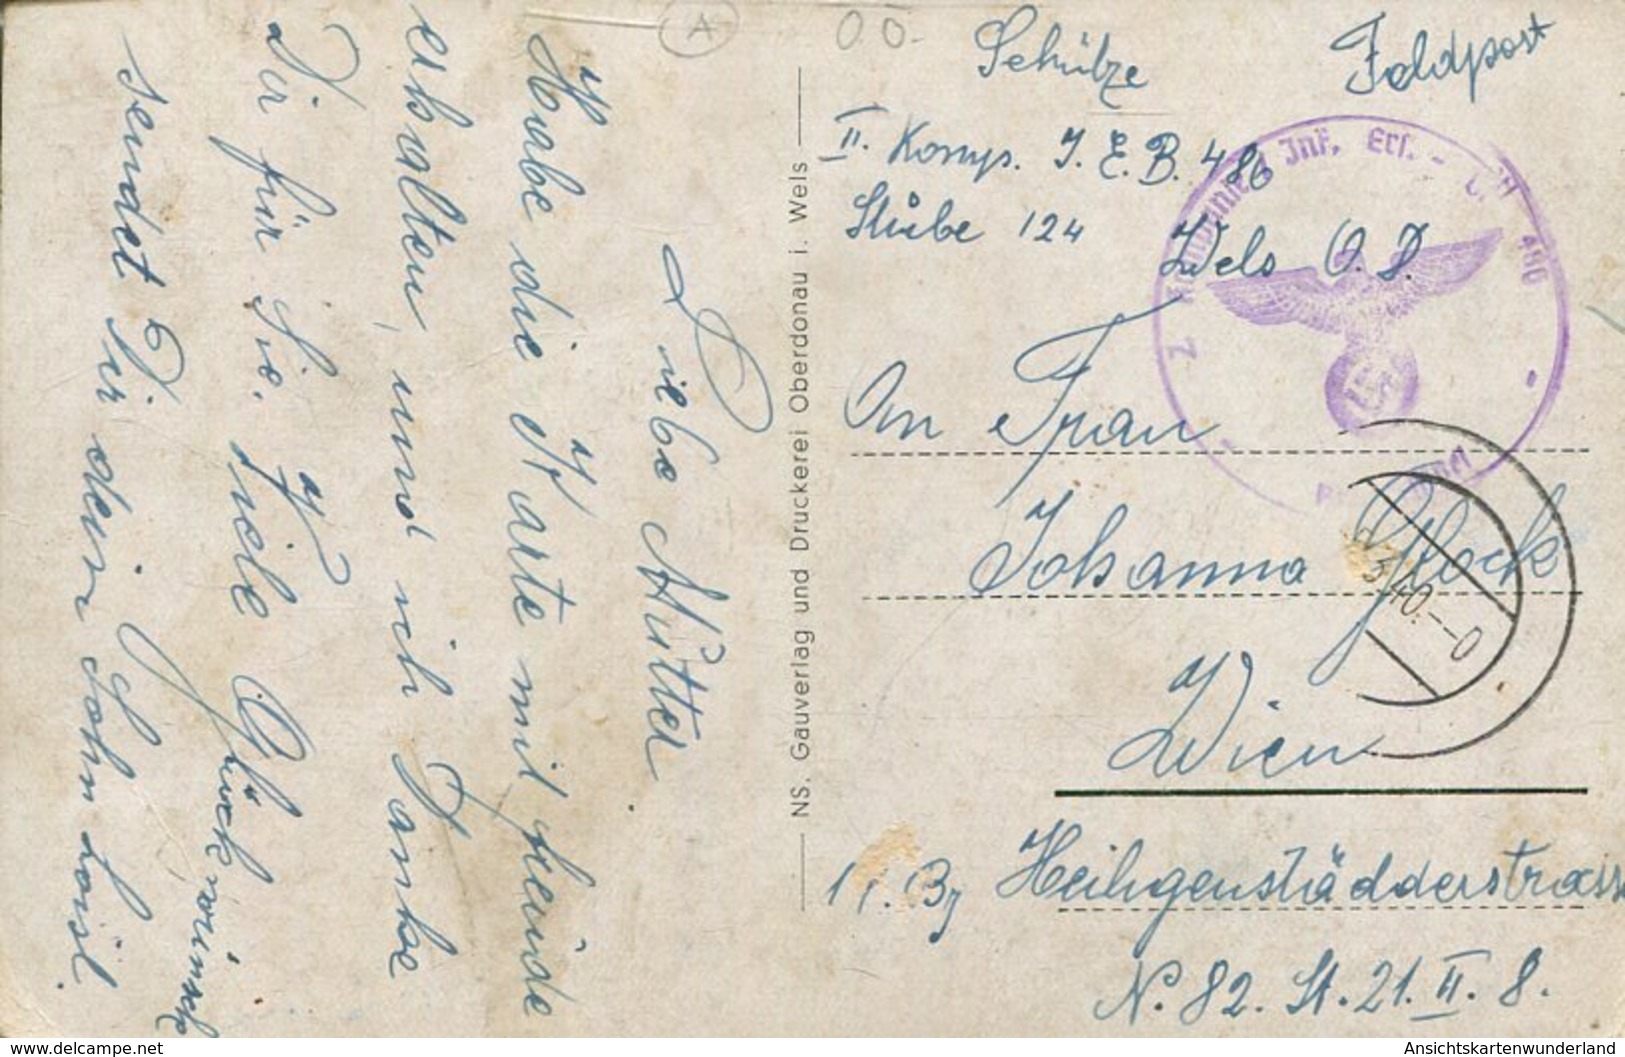 Liebe Mutter
Habe die Karte mit freude
erhalten, und ich Danke
Dir für Sie. Viele Glückwünsche
sendet Dir dein Sohn Loisl.
NS. Gauverlag und Druckerei Oberdonau i. Wels
A
O.D.
Schütze
Feldpost
II. Komp. I. E. B. 486
Stube 124 Wels O. D.
Inf. Ers. - 486
An Frau
Johanna Glock
3.40.--0
Wien
Heiligenstädderstrasse
N. 82. St. 21. II. 8.
www.delcampe.net
Ansichtskartenwunderland